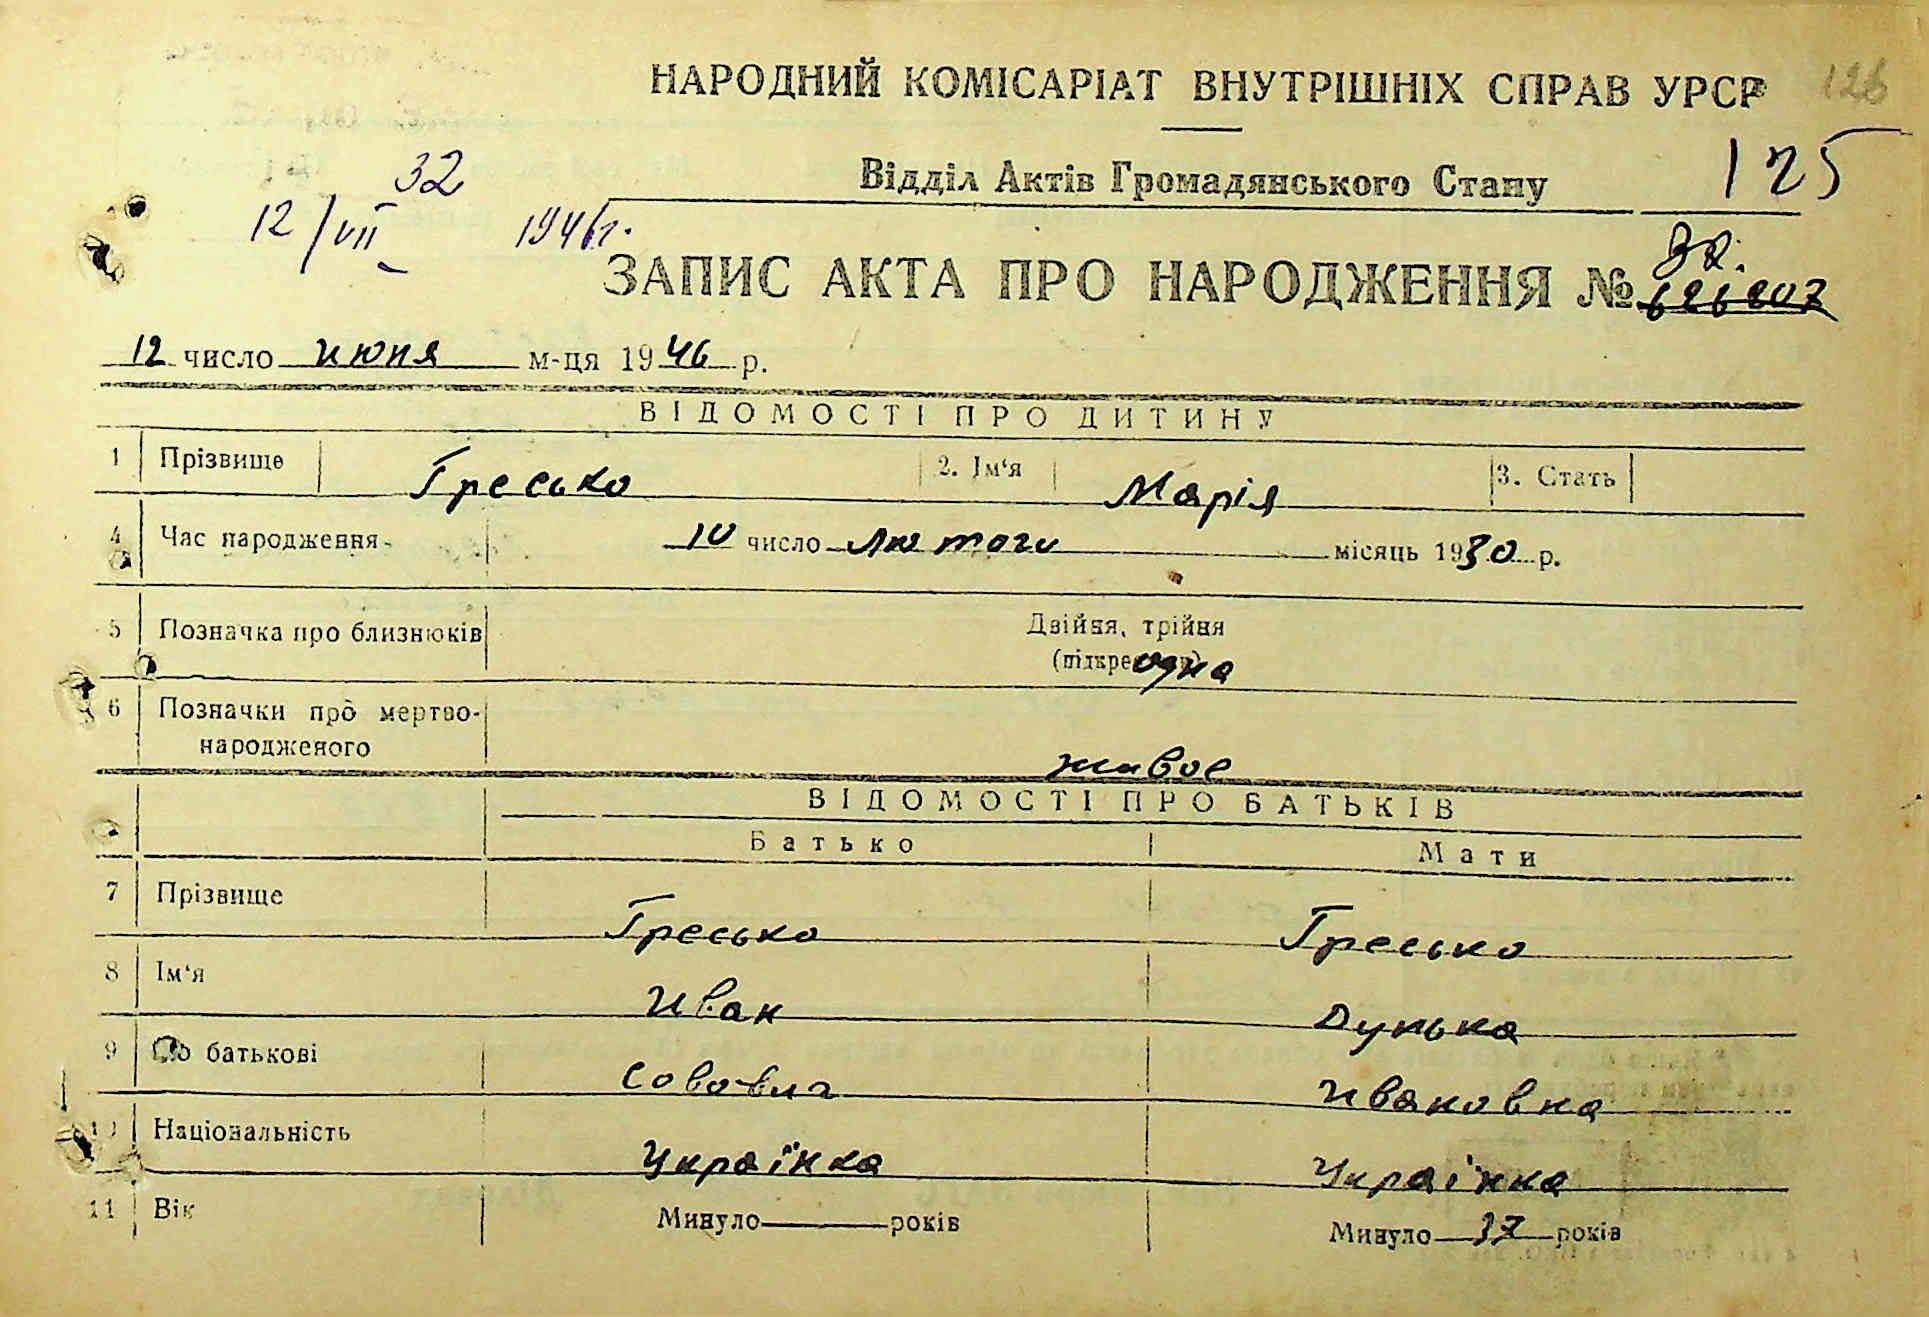 НАРОДНИЙ КОМІСАРІАТ ВНУТРІШНІХ СПРАВ УРСР 126
Відділ Актів Громадянського Стану 125
32
12/VII 1946 г.
ЗАПИС АКТА ПРО НАРОДЖЕННЯ № 32.
12 число июня м-ця 1946 р.
ВІДОМОСТІ ПРО ДИТИНУ
1 Прізвище Гресько 2. Ім'я Марія 3. Стать
4 Час народження 10 число лютого місяць 1930 р.
5 Позначка про близнюків Двійня, трійня
одна
6 Позначки про мертво-
народженого живое
ВІДОМОСТІ ПРО БАТЬКІВ
Батько Мати
7 Прізвище Гресько Гресько
8 Ім'я Иван Дунька
9 По батькові Совович Ивановна
10 Національність Українка Українка
11 Вік Минуло років Минуло 37 років